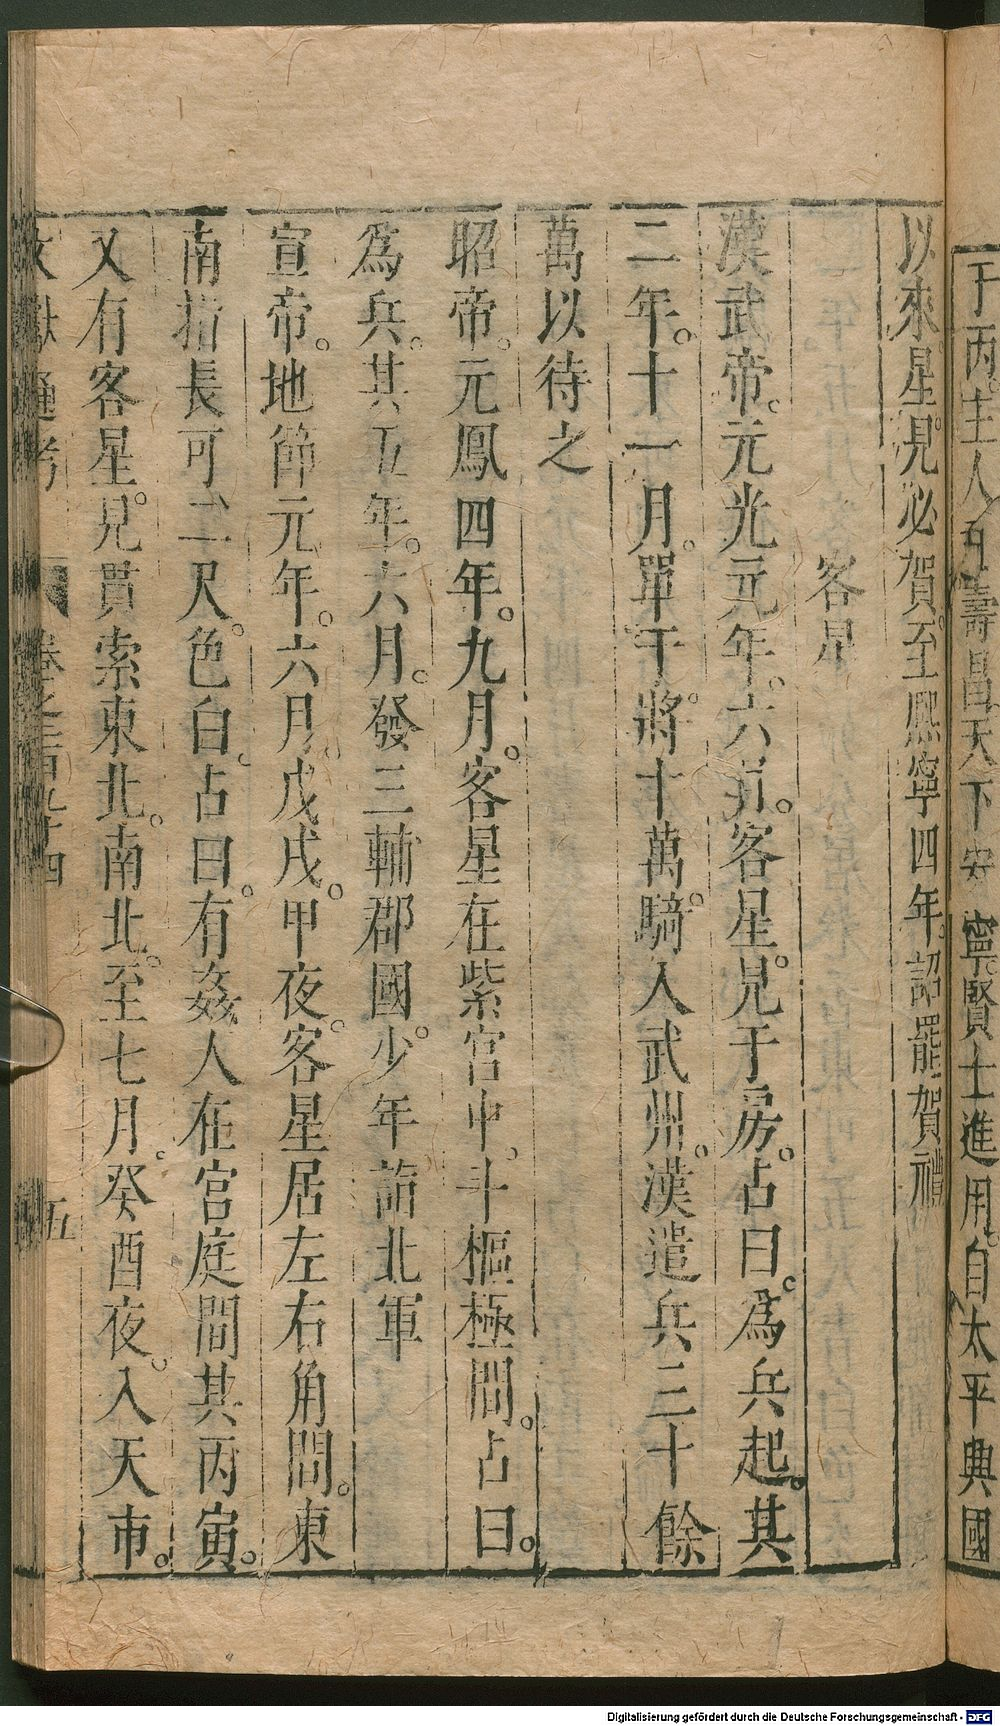 于丙主人主壽昌天下安寧賢士進用自太平興國
以來星見必賀至熙寧四年詔罷賀禮
客星
漢武帝元光元年六月客星見于房占曰為兵起其
二年十一月單于將十萬騎入武州漢遣兵三十餘
萬以待之
昭帝元鳳四年九月客星在紫宫中斗樞極間占曰
為兵其五年六月發三輔郡國少年詣北軍
宣帝地節元年六月戊戌甲夜客星居左右角間東
南指長可二尺色白占曰有姦人在宫庭間其丙寅
又有客星見貫索東北南北至七月癸酉夜入天市
文獻通考 卷之二百九十四 五
Digitalisierung gefördert durch die Deutsche Forschungsgemeinschaft - DFG